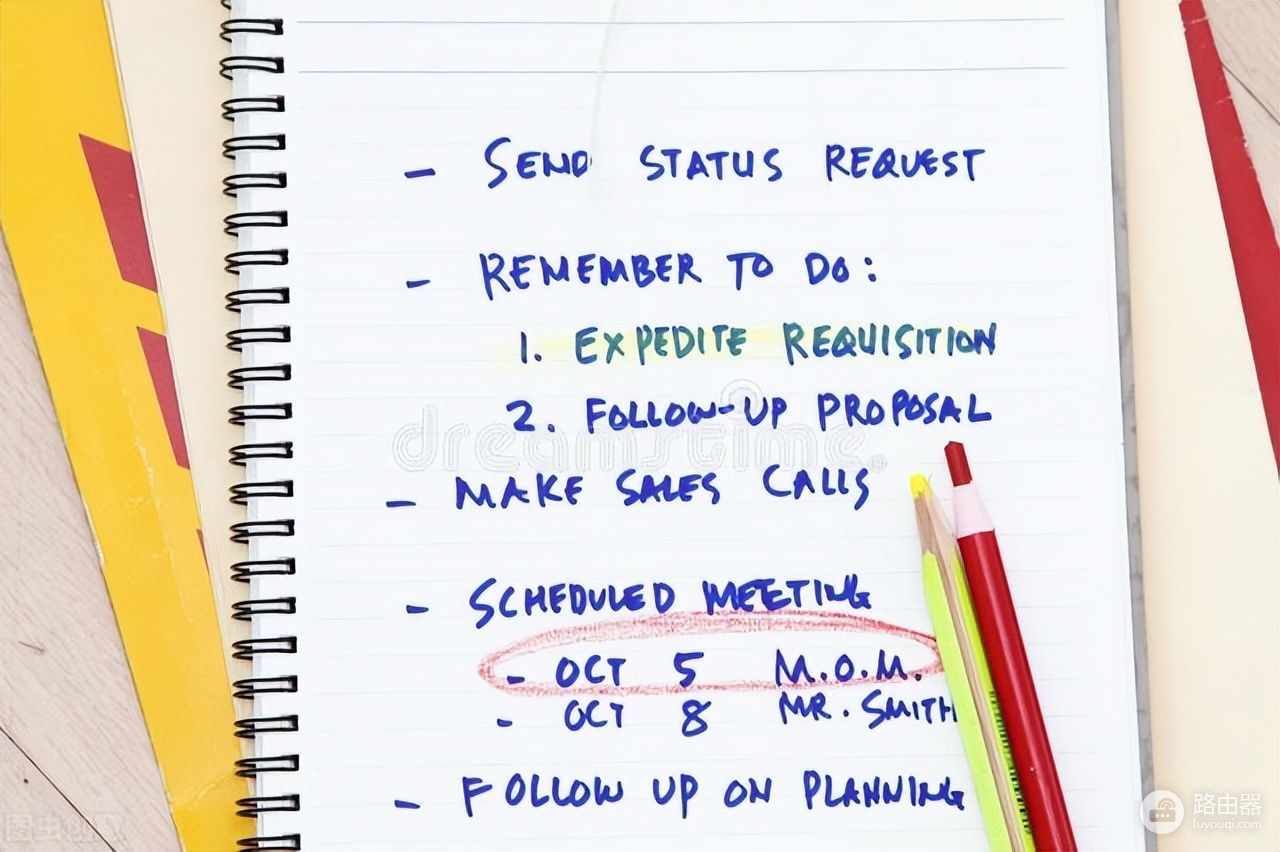 - SEND STATUS REQUEST
- REMEMBER TO DO:
1. EXPEDITE REQUISITION
2. FOLLOW-UP PROPOSAL
dreamstime.
- MAKE SALES CALLS
- SCHEDULED MEETING
- OCT 5 M.O.M.
- OCT 8 MR. SMITH
- FOLLOW UP ON PLANNING
图虫创意
路由器
luyouqi.com